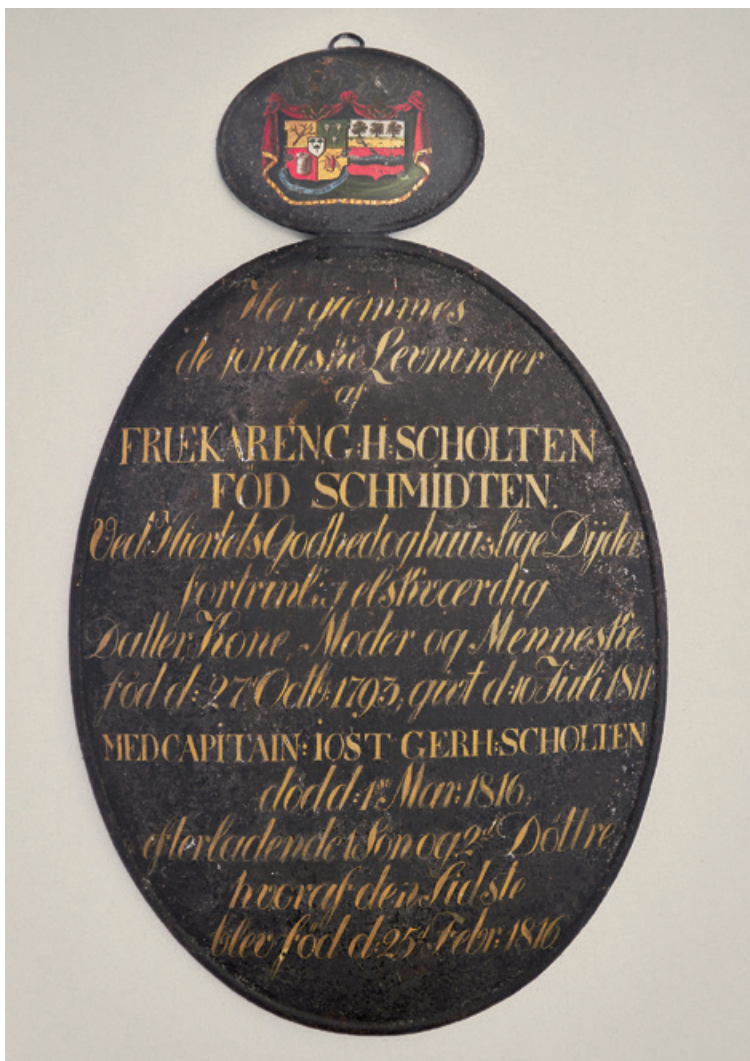 Her giemmes
de jordiske Levninger
af
FRUE KAREN C: H: SCHOLTEN
FÖD SCHMIDTEN.
Ved Hiertets Godhed og huuslige Dyder
fortrinlig elskværdig
Datter, Kone, Moder og Menneske
föd d: 27 Octb: 1793, givt d: 10 Juli 1811
MED CAPITAIN: IOST GERH: SCHOLTEN
död d: 1ste Mar: 1816,
efterladende 1 Sön og 2de Döttre
hvoraf den Sidste
blev föd d: 25d Febr: 1816.